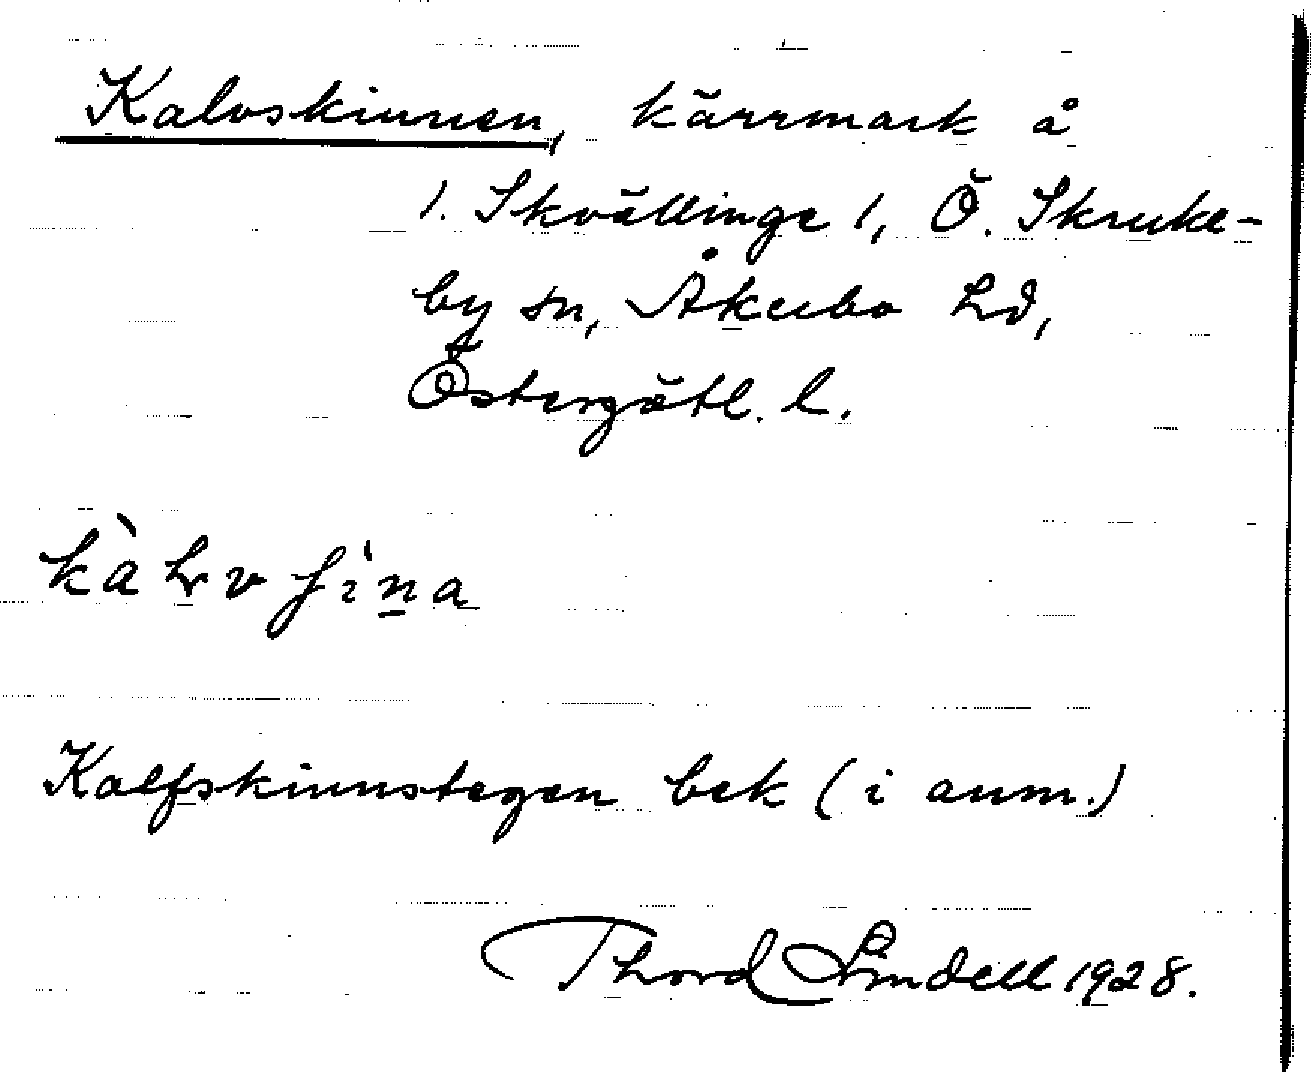 Kalvskinnen, kärrmark å
1. Skvällinge 1, Ö. Skruke-
by sn, Åkerbo hd,
Östergötl. l.
kàlvʃiṉa
Kalfskinnstegen bek (i anm.)
Thord Lindell 1928.